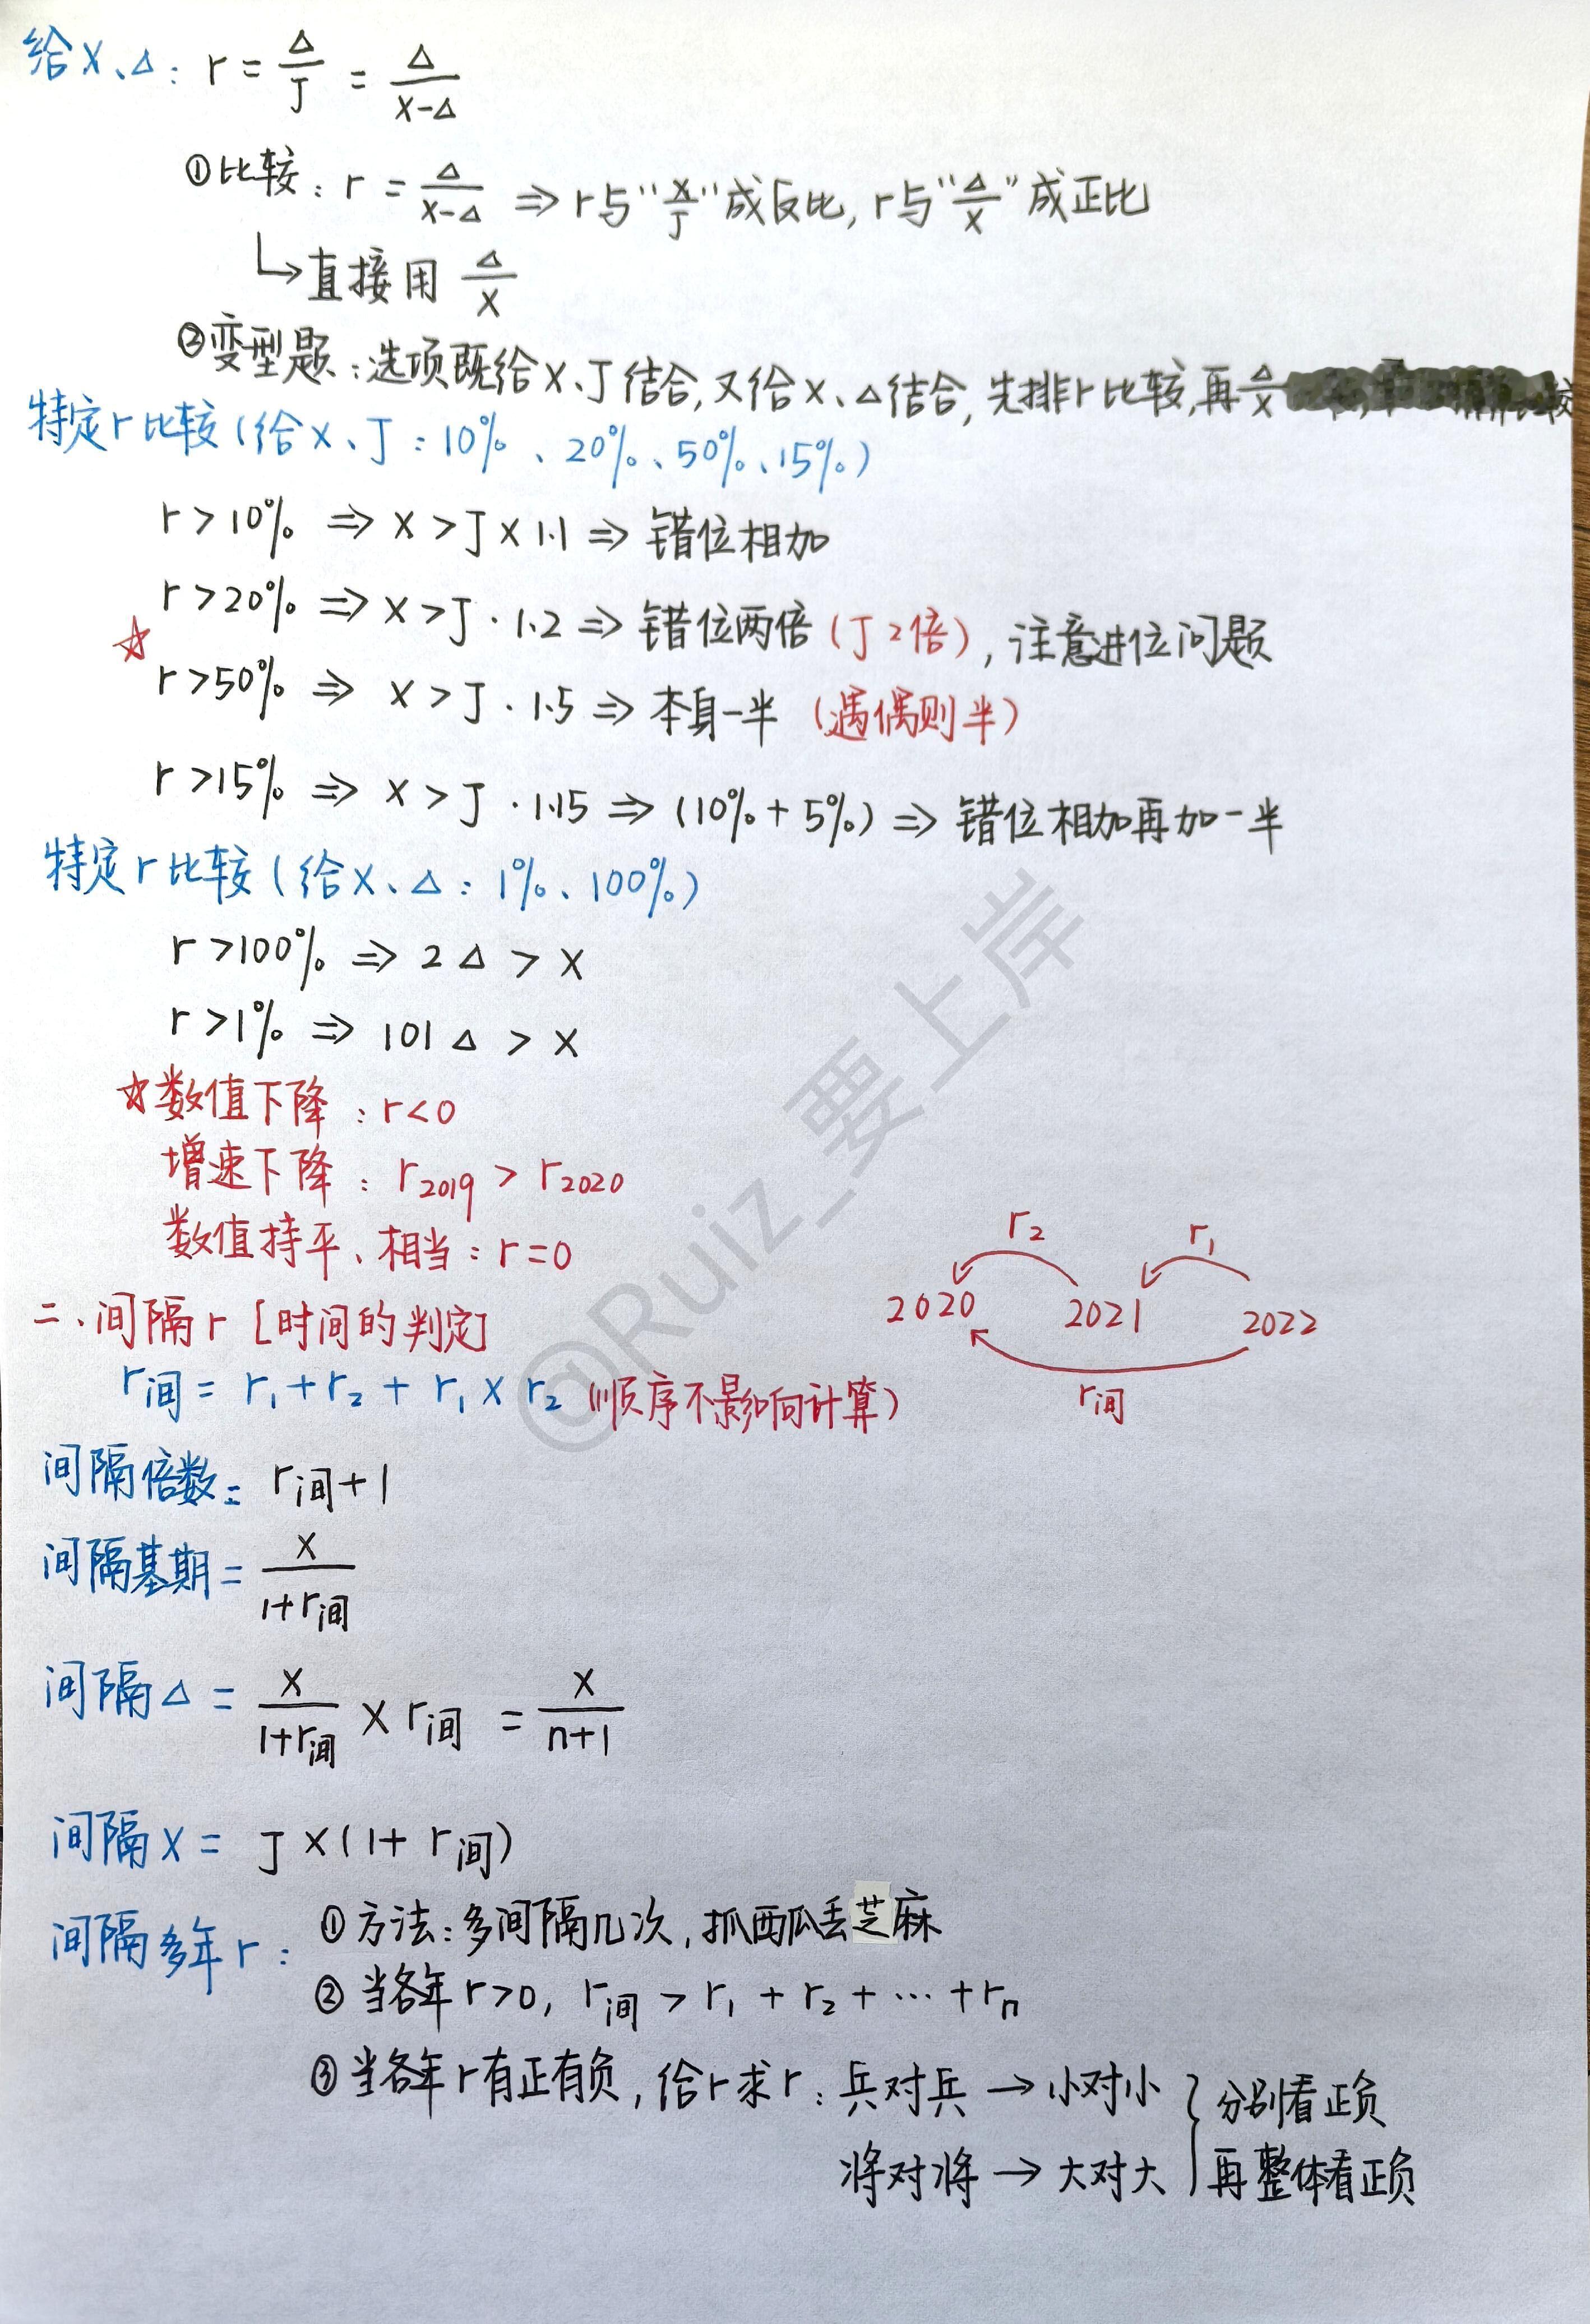 给X、△: r = △/J = △/(X-△)
①比较: r = △/(X-△) ⇒ r与"X/J"成反比, r与"△/X"成正比
↳直接用 △/X
②变型题:选项既给X、J结合,又给X、△结合,先排r比较,再△/X
特定r比较(给X、J: 10%、20%、50%、15%)
r>10% ⇒ X>J×1.1 ⇒ 错位相加
☆ r>20% ⇒ X>J·1.2 ⇒ 错位两倍(J2倍),注意进位问题
r>50% ⇒ X>J·1.5 ⇒ 本身一半 (遇偶则半)
r>15% ⇒ X>J·1.15 ⇒ (10%+5%) ⇒ 错位相加再加一半
特定r比较(给X、△: 1%、100%)
r>100% ⇒ 2△ > X
r>1% ⇒ 101△ > X
☆数值下降: r<0
增速下降: r2019 > r2020
数值持平、相当: r=0
r2 r1
2020 2021 2022
r间
二、间隔r [时间的判定]
r间 = r1+r2+r1×r2 (顺序不影响计算)
间隔倍数= r间+1
间隔基期= X/(1+r间)
间隔△ = X/(1+r间) × r间 = X/(n+1)
间隔X = J×(1+r间)
间隔多年r: ①方法:多间隔几次,抓西瓜丢芝麻
②当各年r>0, r间 > r1+r2+…+rn
③当各年r有正有负,给r求r: 兵对兵 → 小对小 } 分别看正负
将对将 → 大对大 再整体看正负
@Ruiz_要上岸